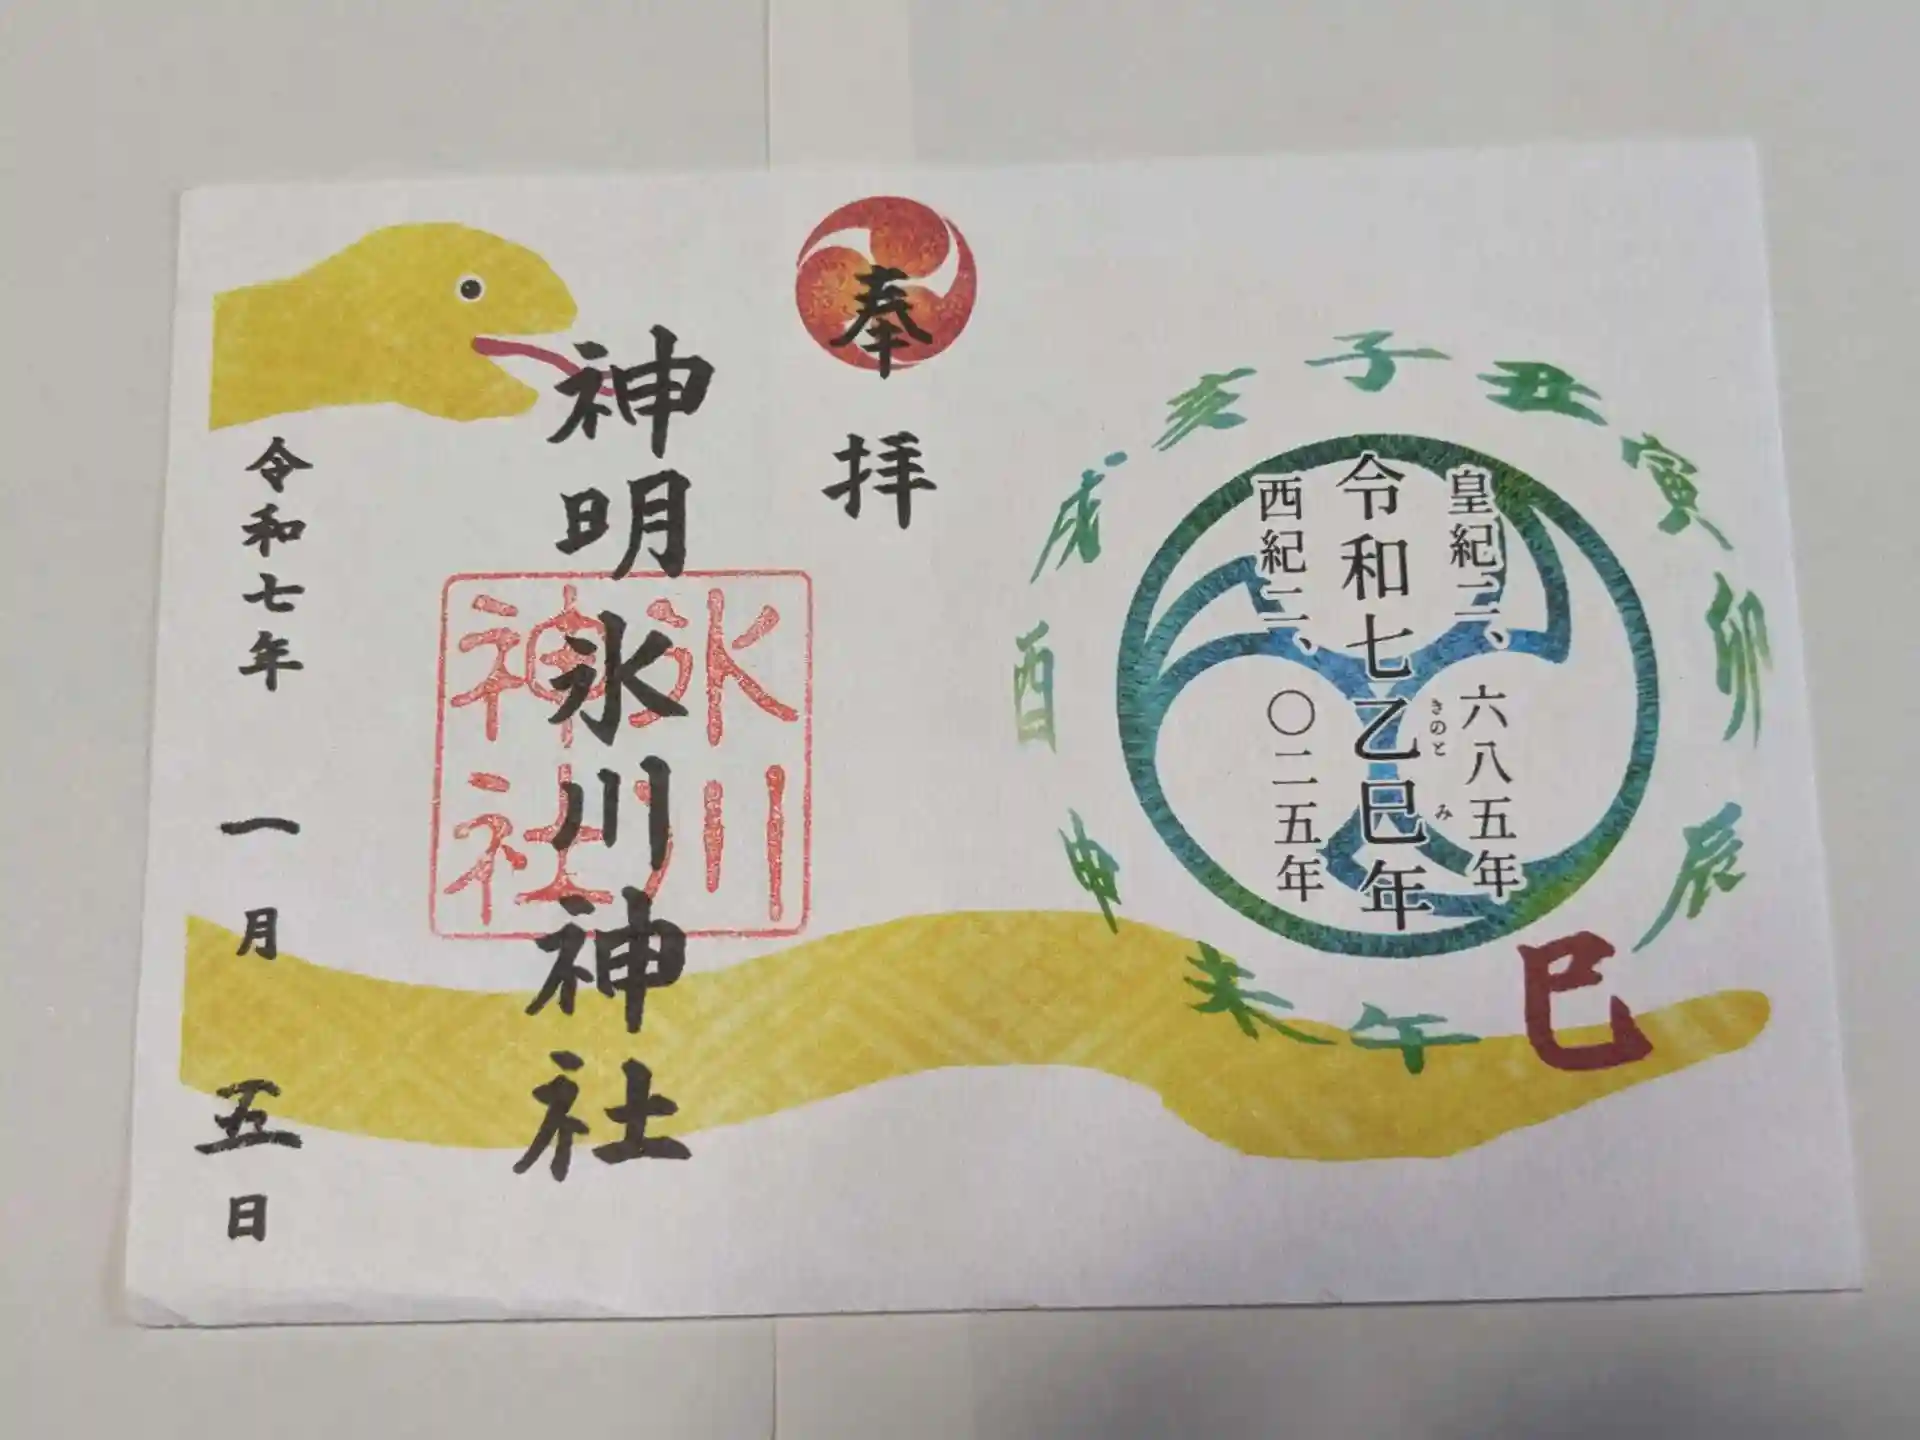 皇紀二、六八五年
令和七乙巳年
きのと
み
西紀二、〇二五年
子
丑
寅
卯
辰
巳
午
未
申
酉
戌
亥
奉拝
神明氷川神社
氷川
神社
令和七年 一月 五日